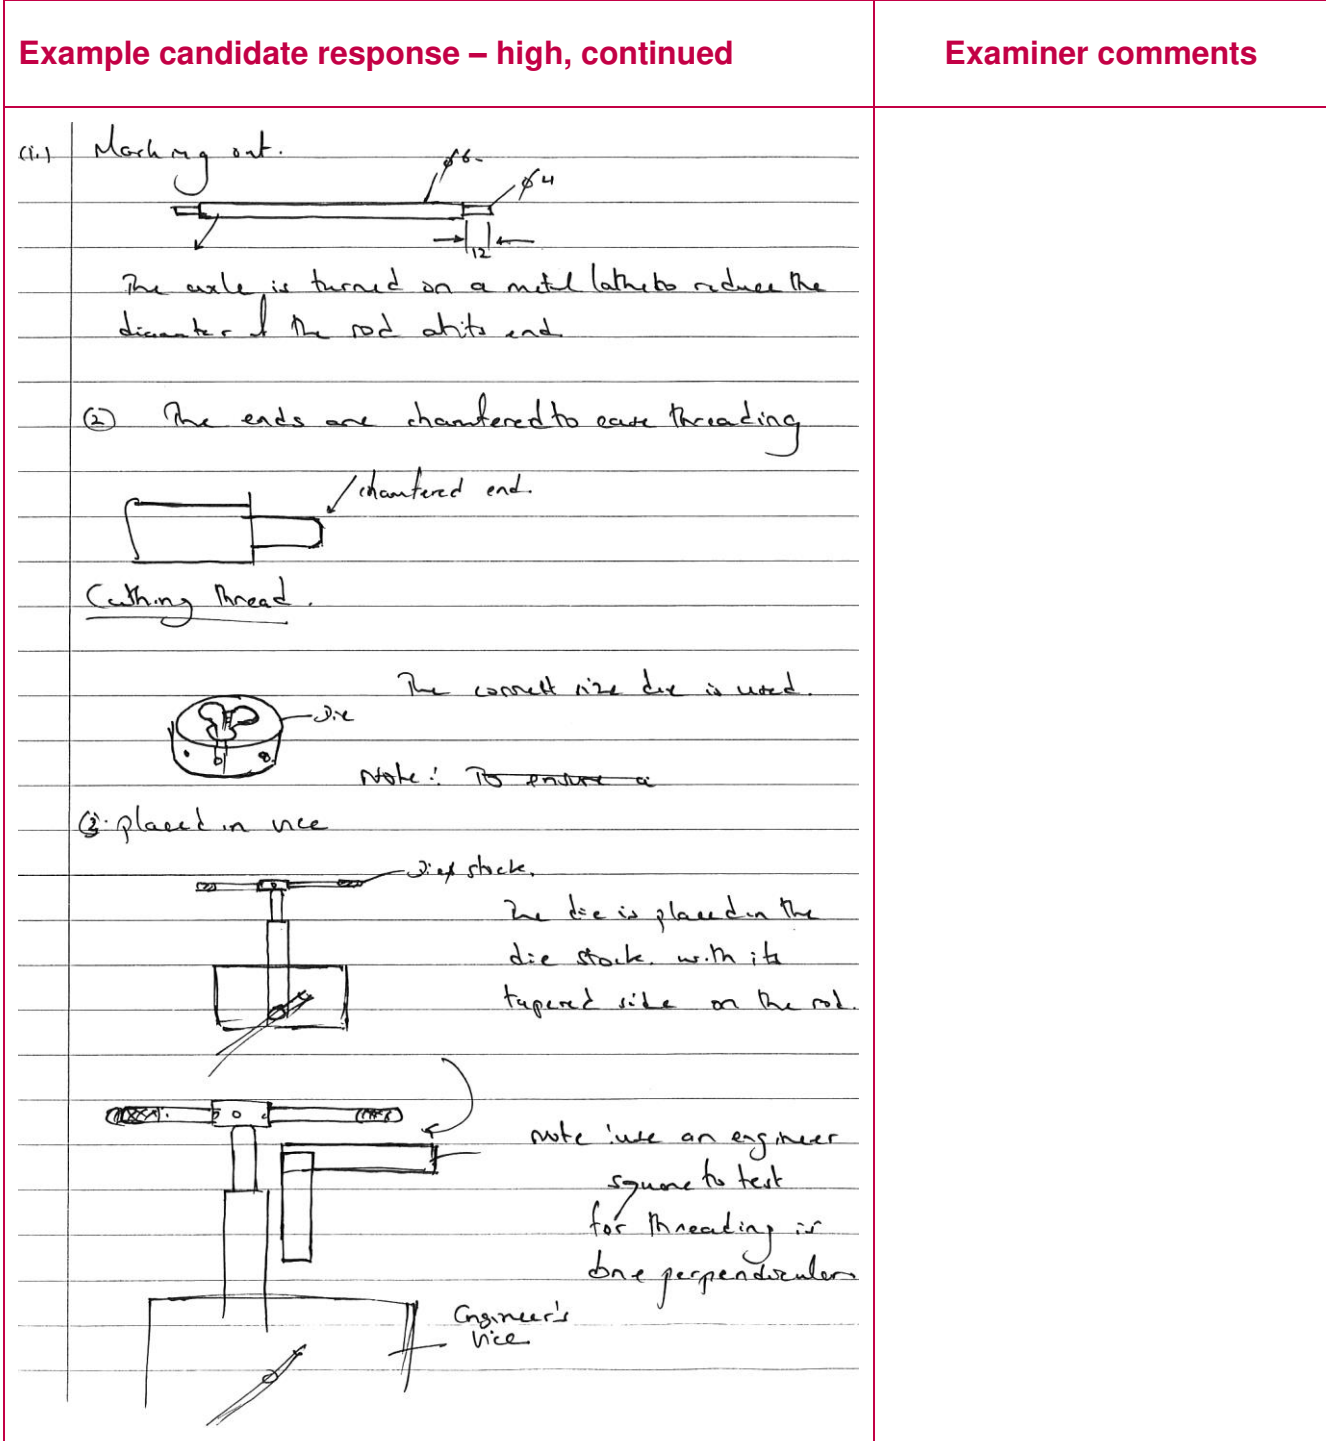 Example candidate response – high, continued
Examiner comments
(i.) Marking out.
ø6
ø4
12
The axle is turned on a metal lathe to reduce the
diameter of the rod at its end
② The ends are chamfered to ease threading
chamfered end.
Cutting Thread.
The correct size die is used.
Die
Note: To ensure a
③ placed in vice
Die stock.
The die is placed in the
die stock. with its
tapered side on the rod.
note: use an engineer
square to test
for threading is
done perpendicular
Engineer's
Vice